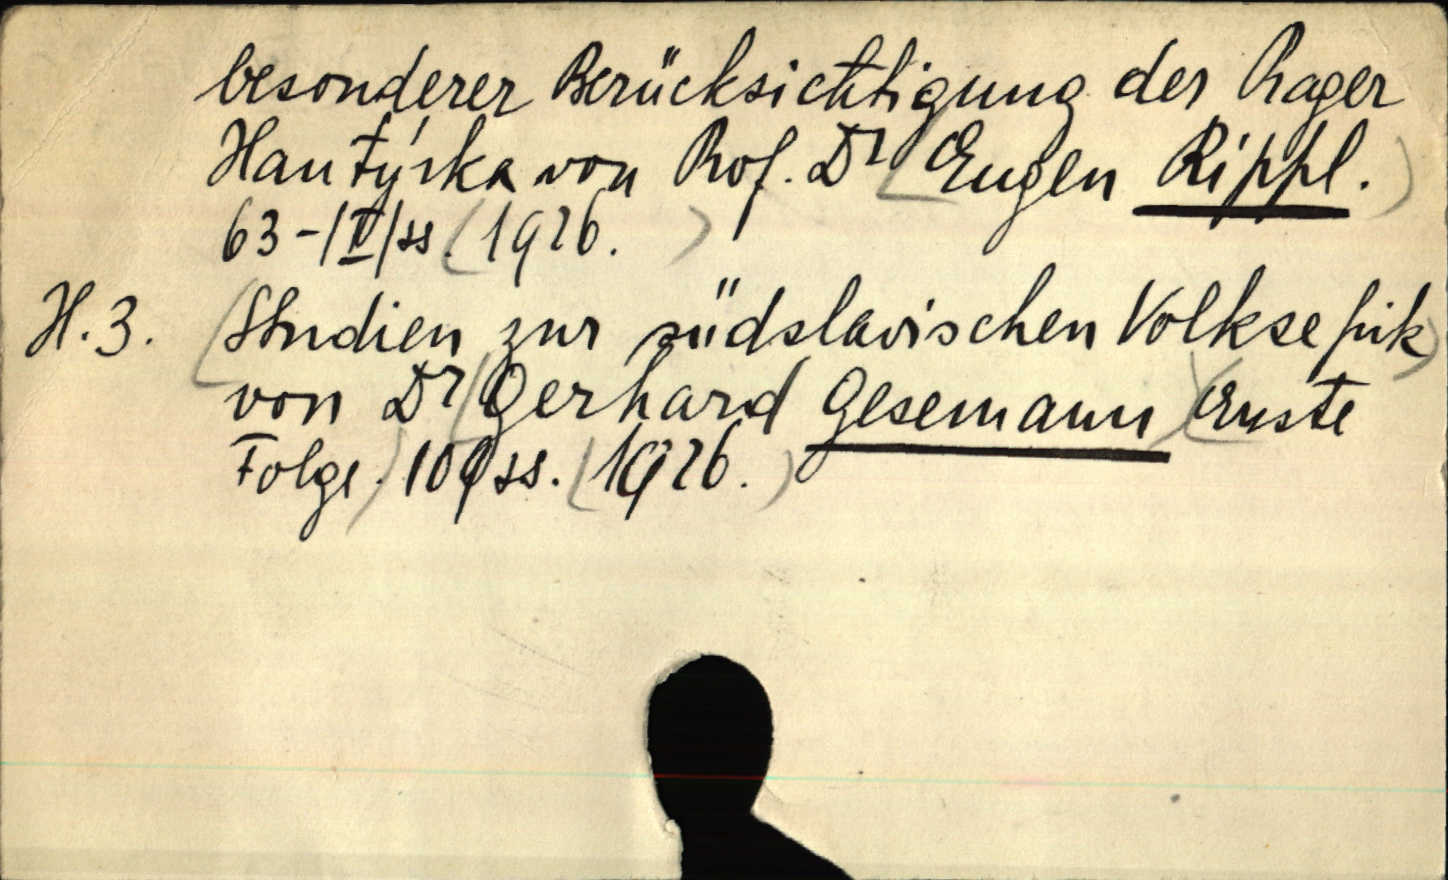 besonderer Berücksichtigung der Prager
Hantýrka von Prof. Dr (Eugen Rippl.)
63-/IV/ss. (1926.)
H.3. (Studien zur südslavischen Volksepik)
von Dr (Gerhard) Gesemann) (Erste
Folge.) 109 ss. (1926.)